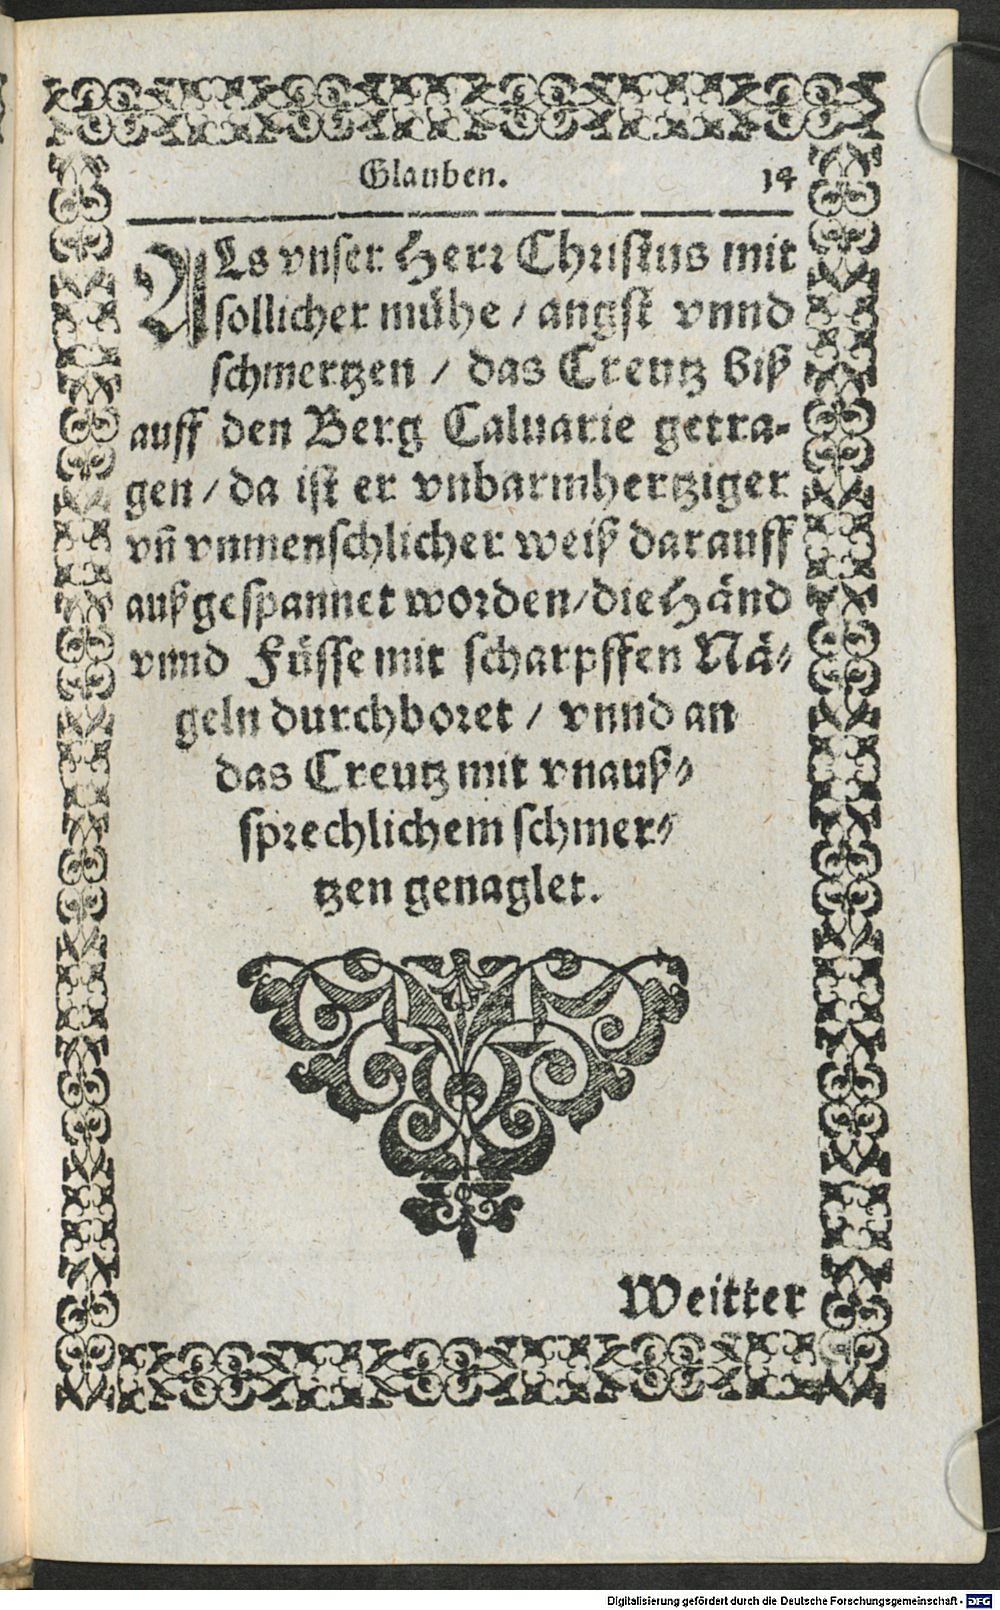 Glauben. 14
ALs vnser Herr Christus mit
sollicher mühe / angst vnnd
schmertzen / das Creutz biß
auff den Berg Caluarie getra-
gen / da ist er vnbarmhertziger
vn̄ vnmenschlicher weiß darauff
außgespannet worden / die Händ
vnnd Füsse mit scharpffen Nä-
geln durchboret / vnnd an
das Creutz mit vnauß-
sprechlichem schmer-
tzen genaglet.
Weitter
Digitalisierung gefördert durch die Deutsche Forschungsgemeinschaft - DFG